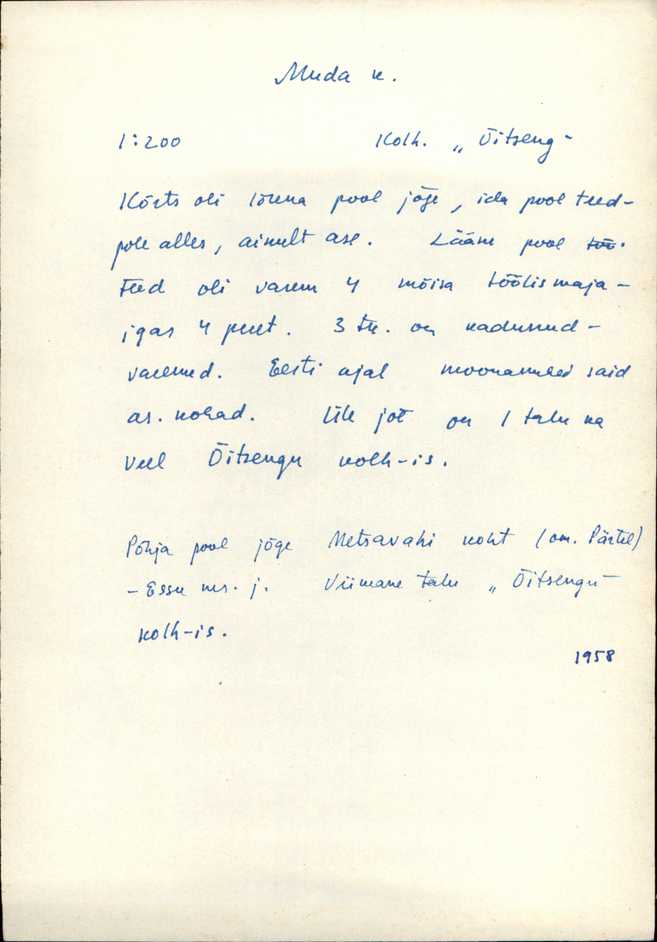 Muda k.
1:200 Kolh. „Õitseng"
Kõrts oli lõuna pool jõge, ida pool teed-
pole alles, ainult ase. Lääne pool töö.
teed oli varem 4 mõisa töölismaja-
igas 4 peret. 3 tk. on kadunud-
varemed. Eesti ajal moonamehed said
as. kohad. Üle jõe on 1 talu ka
veel Õitsengu kolh-is.
Põhja pool jõge Metsavahi koht (om. Pärtel)
- Essu ms. j. Viimane talu „Õitsengu"
kolh-is.
1958